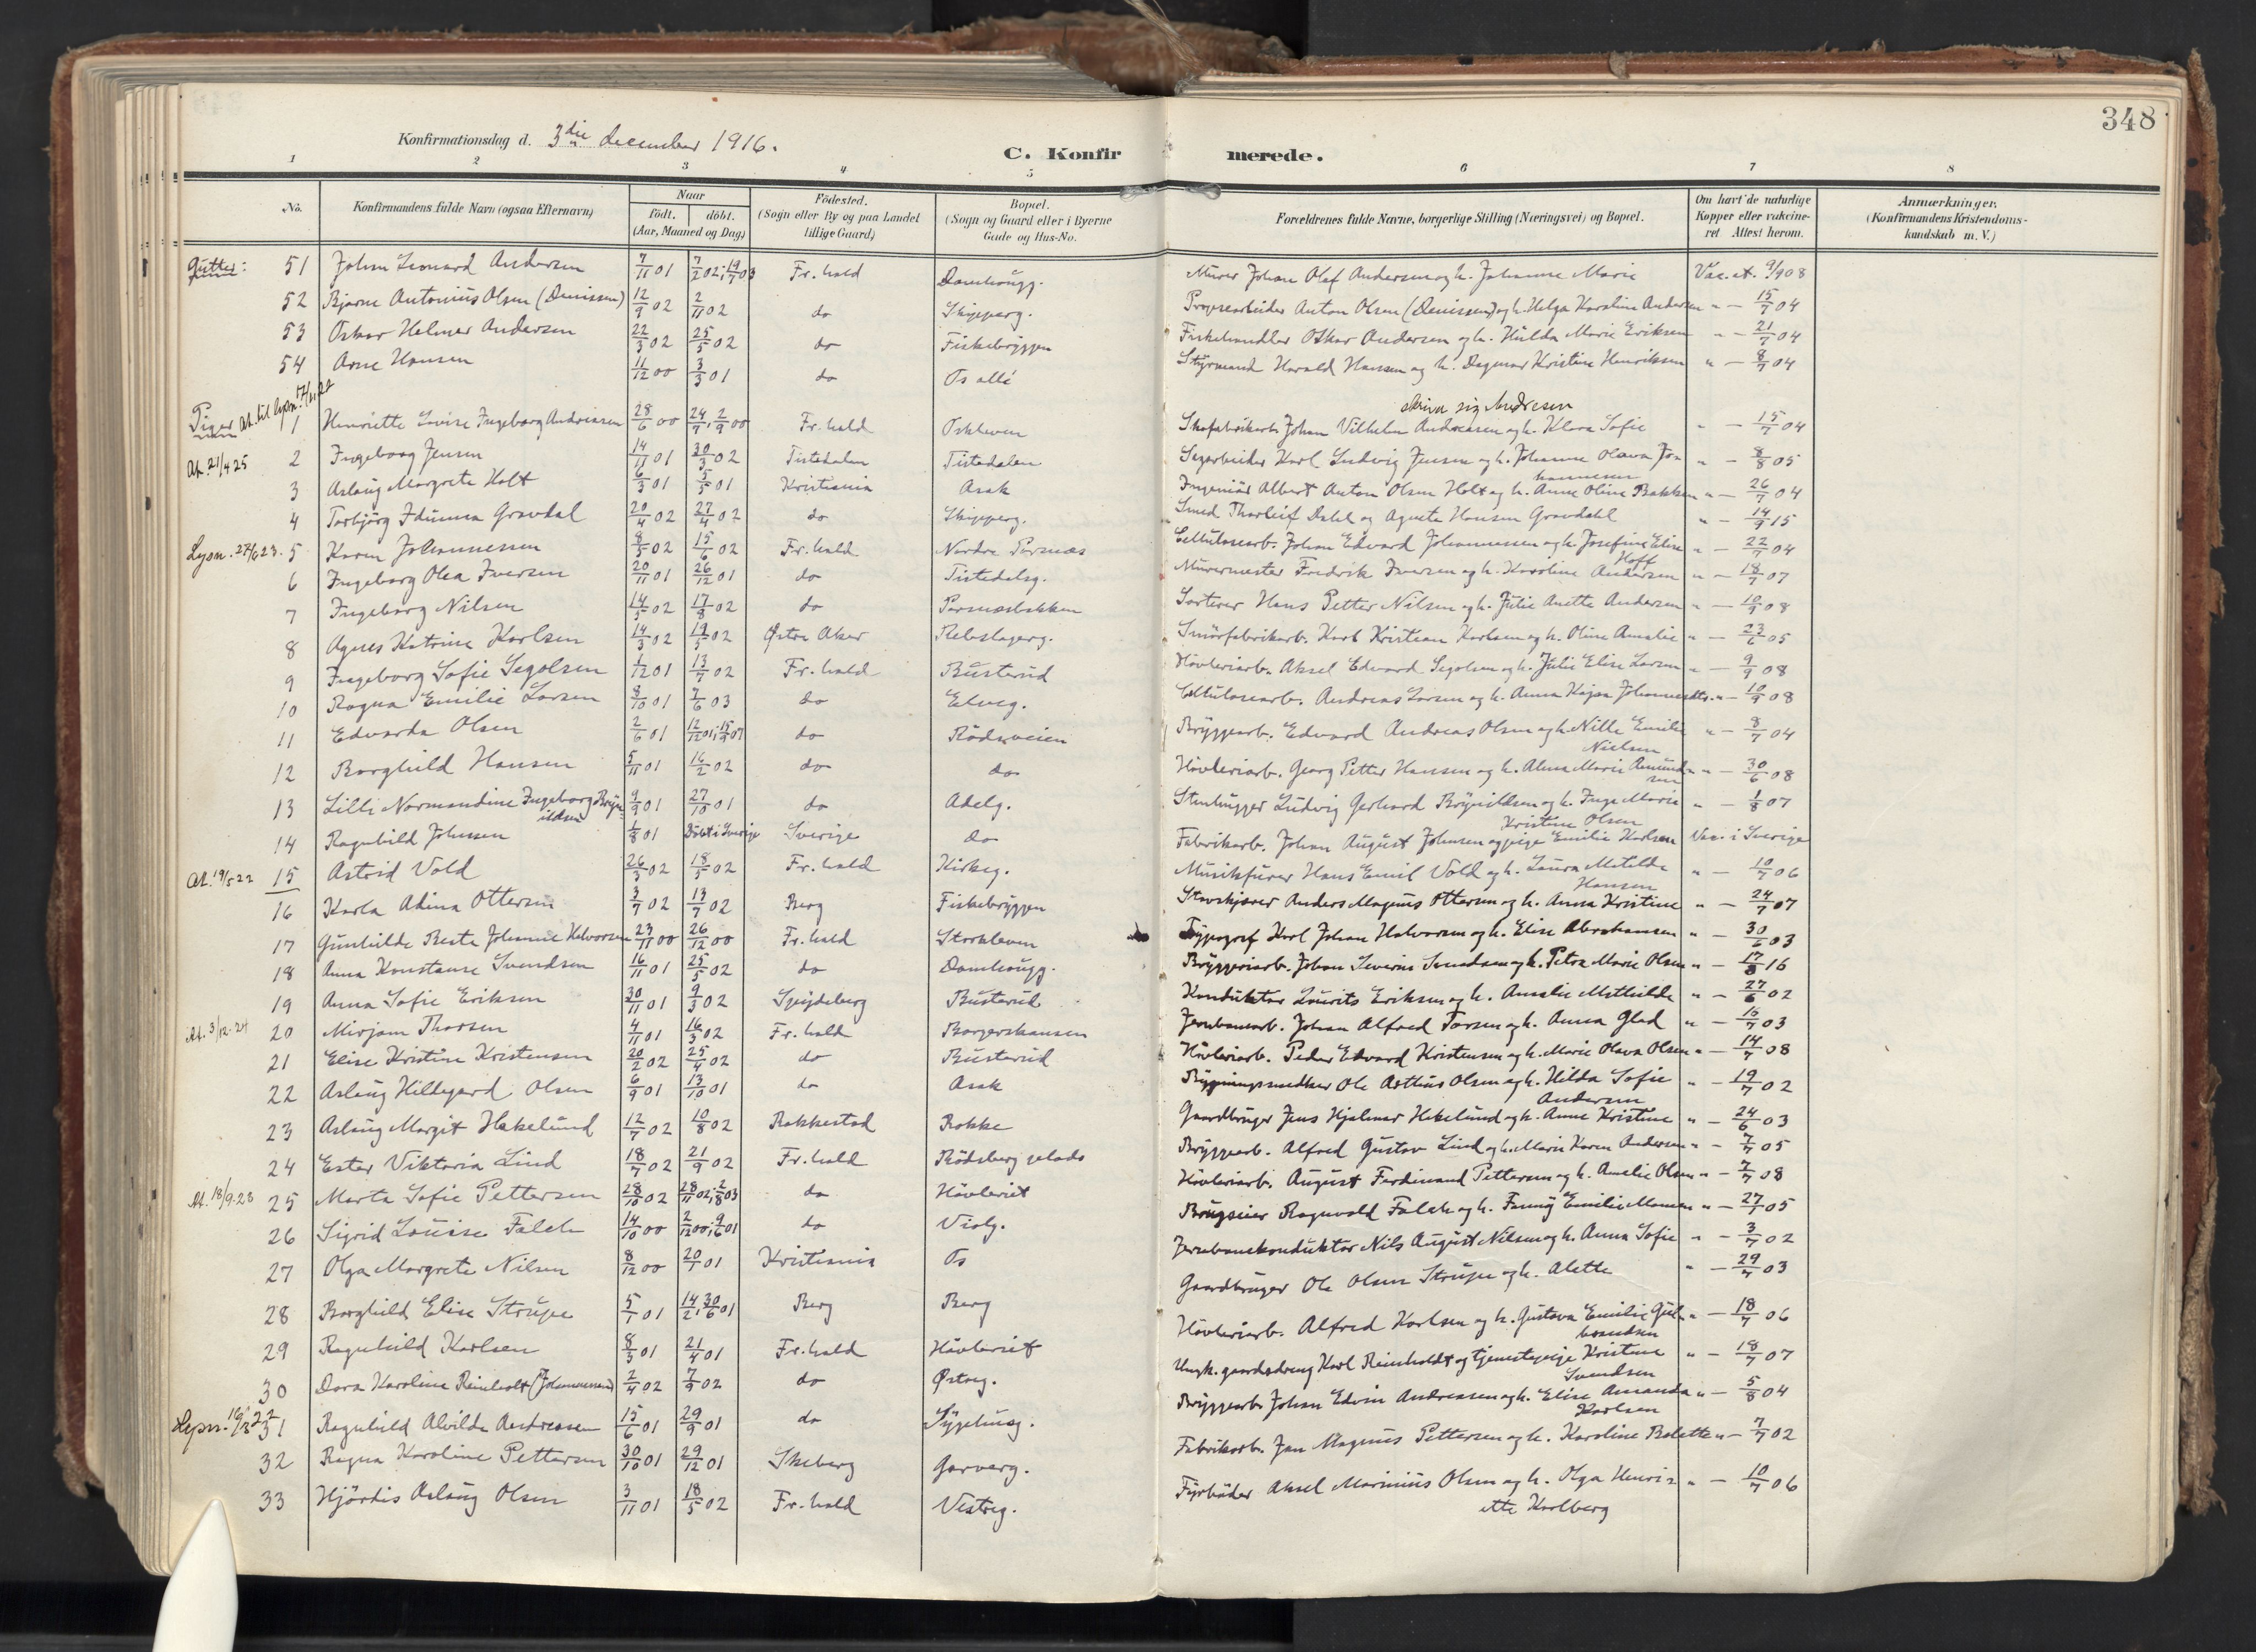 348
Konfirmationsdag d. 3die December 1916.
C. Konfirmerede.
1 2 3 4 5 6 7 8
No. Konfirmandens fulde Navn (ogsaa Efternavn) Naar født. døbt. (Aar, Maaned og Dag) Fødested. (Sogn eller By og paa Landet tillige Gaard) Bopæl. (Sogn og Gaard eller i Byerne Gade og Hus-No. Forældrenes fulde Navne, borgerlige Stilling (Næringsvei) og Bopæl. Om havt de naturlige Kopper eller vakcineret Attest herom. Anmærkninger. (Konfirmandens Kristendomskundskab m. V.)
Gutter: 51 Johan Leonard Andersen 7/11 01 7/2 02; 19/7 03 Fr.hald Damhaugg. Murer Johan Olaf Andersen og h. Johanne Marie Vac. at. 9/9 08
52 Bjarne Antonius Olsen (Denissen) 12/9 02 2/11 02 do Skipperg. Anton Olsen (Denissen) og h. Helga Karoline Andersen " — 15/7 04
53 Oskar Helmer Andersen 22/3 02 25/5 02 do Fiskebryggen Fiskehandler Oskar Andersen og h. Hulda Marie Eriksen " — 21/7 04
54 Arne Hansen 11/12 00 3/3 01 do Os allé Styrmand Harald Hansen og h. Dagmar Kristine Henriksen " — 8/7 04
skriver sig Andresen
Piger 1 Henriette Lovise Ingeborg Andreassen 28/6 00 24/7, 2/9 00 Fr.hald Oskleven Skofabrikarb. Johan Vilhelm Andreasen og h. Klara Sofie " — 15/7 04
At. 21/4 25 2 Ingeborg Jensen 14/11 01 30/3 02 Tistedalen Tistedalen Sagarbeider Karl Ludvig Jensen og h. Johanne Olava Johannesen " — 8/8 05
3 Aslaug Margrete Holt 6/3 01 5/5 01 Kristiania Asak Ingeniør Albert Anton Olsen Holt og h. Anne Oline Bakken " — 26/7 04
4 Torbjörg Idunna Gravdal 20/4 02 27/4 02 do Skipperg. Smed Thorleif Dahl og Agnete Hansen Gravdahl " — 14/9 15
Lysn. 27/6 23. 5 Karen Johannessen 8/5 02 15/6 02 Fr.hald Nordre Porsnæs Cellulosearb. Johan Edvard Johannessen og h. Josefine Elise Hoff " — 22/7 04
6 Ingeborg Olea Iversen 20/11 01 26/12 01 do Tistedalsg. Murermester Fredrik Iversen og h. Karoline Andersen " — 18/7 07
7 Ingeborg Nilsen 14/5 02 17/8 02 do Porsnæsbakken Sorterer Hans Petter Nilsen og h. Julie Anette Andersen " — 10/9 08
8 Agnes Katrine Karlsen 14/3 02 19/5 02 Østre Aker Rebslagerg. Smörfabrikarb. Karl Kristian Karlsen og h. Oline Amalie " — 23/6 05
9 Ingeborg Sofie Segolsen 1/12 01 13/7 02 Fr.hald Busterud Høvleriarb. Aksel Edvard Segolsen og h. Julie Elise Larsen " — 9/9 08
10 Ragna Emilie Larsen 8/10 01 7/6 03 do Elveg. Cellulosearb. Andreas Larsen og h. Anna Kajsa Johannesdtr. " — 10/9 08
11 Edvarda Olsen 2/6 01 12/12 01; 15/9 07 do Rödsveien Bryggearb. Edvard Andreas Olsen og h. Nille Emilie Nielsen " — 8/7 04
12 Borghild Hansen 5/11 01 16/2 02 do do Høvleriarb. Georg Petter Hansen og h. Alma Marie Amundsen " — 30/6 08
13 Lilli Normandine Ingeborg Brynildsen 9/9 01 27/10 01 do Adelg. Stenhugger Ludvig Gerhard Brynildsen og h. Inga Marie Kristine Olsen " — 1/8 07
14 Ragnhild Johnsen 1/8 01 Døbt i Sverige Sverige do Fabrikarb. Johan August Johnsen og pige Emilie Karlsen Vac. i Sverige
At. 19/5 22 15 Astrid Vold 26/3 02 18/5 02 Fr.hald Kirkeg. Musikfurer Hans Emil Vold og h. Laura Matilde Hansen " — 10/7 06
16 Karla Adina Ottersen 3/7 02 13/7 02 Berg Fiskebryggen Stavskjærer Anders Magnus Ottersen og h. Anna Kristine " — 24/7 07
17 Gunhilde Beate Johanne Halvorsen 23/11 00 26/12 00 Fr.hald Storkleven Typograf Karl Johan Halvorsen og h. Elise Abrahamsen " — 30/6 03
18 Anna Konstanse Svendsen 16/11 01 25/5 02 do Damhaugg. Bryggeriarb. Johan Severin Svendsen og h. Petra Marie Olsen " — 17/8 16
19 Anna Sofie Eriksen 30/11 01 9/3 02 Spydeberg Busterud Konduktør Laurits Eriksen og h. Amalie Mathilde " — 27/6 02
At. 3/12 24 20 Mirjam Thorsen 4/11 01 16/3 02 Fr.hald Borgerskansen Jernbanearb. Johan Alfred Torsen og h. Anna Glad " — 15/7 03
21 Elise Kristine Kristensen 20/2 02 25/4 02 do Busterud Høvleriarb. Peder Edvard Kristensen og h. Marie Olava Olsen " — 14/7 08
22 Aslaug Hildegard Olsen 6/9 01 13/10 01 do Asak Ole Olsen og h. Hilda Sofie Andersen " — 19/7 02
23 Aslaug Margit Hakelund 12/7 02 10/8 02 Rakkestad Rokke Gaardbruger Jens Hjalmar Hakelund og h. Anne Kristine " — 24/6 03
24 Ester Viktoria Lind 18/7 02 21/9 02 Fr.hald Rödsberg Bryggearb. Alfred Gustav Lind og h. Marie Karen Andersen " — 7/7 05
At. 18/9 23 25 Marta Sofie Pettersen 28/10 02 28/11 02; 2/8 03 do Høvleriet Høvleriarb. August Ferdinand Pettersen og h. Amalie Olsen " — 7/7 08
26 Sigrid Louise Falch 14/10 00 2/12 00; 9/6 01 do Violg. Brugseier Ragnvald Falch og h. Fanny Emilie Monsen " — 27/7 05
27 Olga Margrete Nilsen 8/12 00 20/1 01 Kristiania Os Jernbanekonduktør Nils August Nilsen og h. Anna Sofie " — 3/7 02
28 Borghild Elise Strupe 5/1 01 14/2, 30/6 01 Berg Berg Gaardbruger Ole Olsen Strupe og h. Alette " — 29/7 03
29 Ragnhild Karlsen 8/3 01 21/4 01 Fr.hald Høvleriet Høvleriarb. Alfred Karlsen og h. Gustava Emilie Gulbrandsen " — 18/7 06
30 Dora Karoline Reinholt (Johannessen) 2/4 02 7/9 02 do Østreg. Ungk. gaardsdreng Karl Reinholdt og tjenestepige Kristine Svendsen " — 18/7 07
Lysn. 31 Ragnhild Alvilde Andreasen 15/6 01 29/9 01 do Sygehusg. Bryggearb. Johan Edvin Andreasen og h. Elise Amanda Karlsen " — 5/8 04
32 Ragna Karoline Pettersen 30/10 01 29/12 01 Skeberg Garverg. Fabrikarb. Jan Magnus Pettersen og h. Karoline Bolette " — 7/7 02
33 Hjördis Aslaug Olsen 3/11 01 18/5 02 Fr.hald Vestreg. Fyrbøder Aksel Marinius Olsen og h. Olga Henriette Karlberg " — 10/7 06